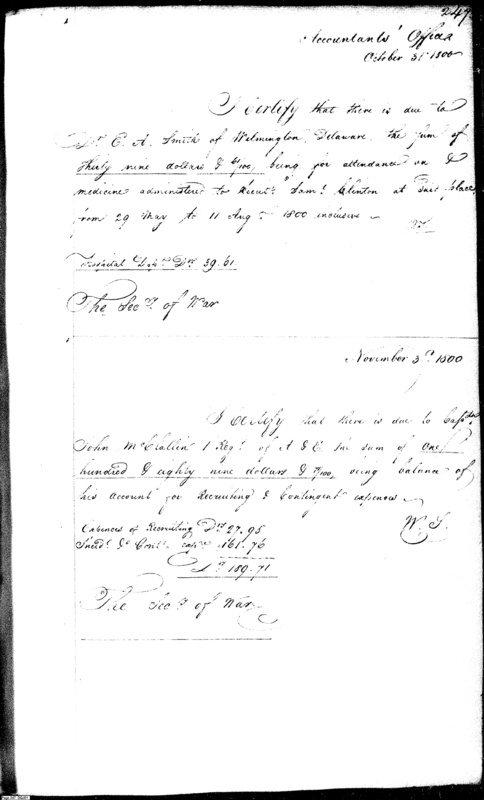 247
Accountants' Office
October 31st 1800
I Certify that there is due to
Dr. E. A. Smith of Wilmington, Delaware, the sum of
thirty nine dollars & 61/100, being for attendance on &
medicine administered to Recruit Saml. Clenton at said place
from 29 May to 11 Augt. 1800 inclusive
Hospital Dept. Drs. 39.61
The Secy. of War
November 3d. 1800
I Certify that there is due to Captn.
John McClallen 1 Regt. of A & E the sum of One
hundred & eighty nine dollars & 71/100, being balance of
his account for Recruiting & Contingent expences
W. S.
Expences of Recruiting Drs. 27.95
& Cont. expes. 161.76
Drs. 189.71
The Secy. of War